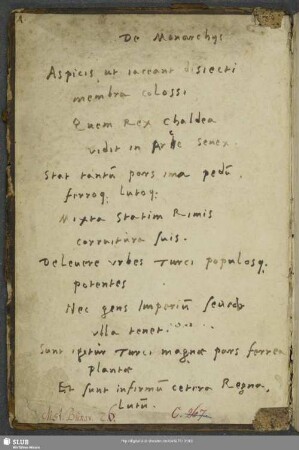 De Monarchys
Aspicis, ut iaceant disiecti
membra colossi
Quem Rex Chaldea
vidit in Senex:
Stat tantũ pars ima pedũ,
ferroq; Lutoq;
Mixta Statim Rimis
corruitura suis.
Delevere urbes Turci populosq;
potentes
Nec gens Imperiũ
ulla tenet.
Sunt igitur Turci magnae pars ferrea
plantae
Et sunt infirmũ cetera Regna,
Lutũ.
C. 267
SLUB